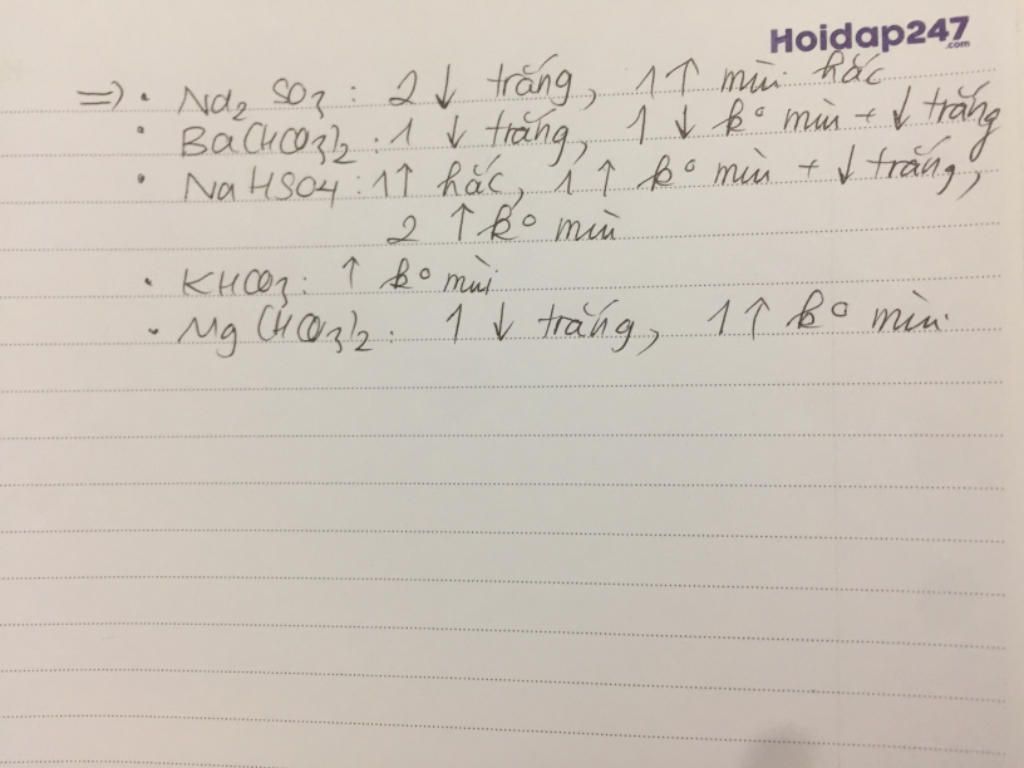 Hoidap247
.com
=> • Na2 SO3 : 2 ↓ trắng, 1 ↑ mùi hắc
• Ba(HCO3)2 : 1 ↓ trắng, 1 ↓ k° mùi + ↓ trắng
• NaHSO4 : 1↑ hắc, 1 ↑ k° mùi + ↓ trắng,
2 ↑ k° mùi
• KHCO3 : ↑ k° mùi
• Mg(HCO3)2 : 1 ↓ trắng, 1↑ k° mùi